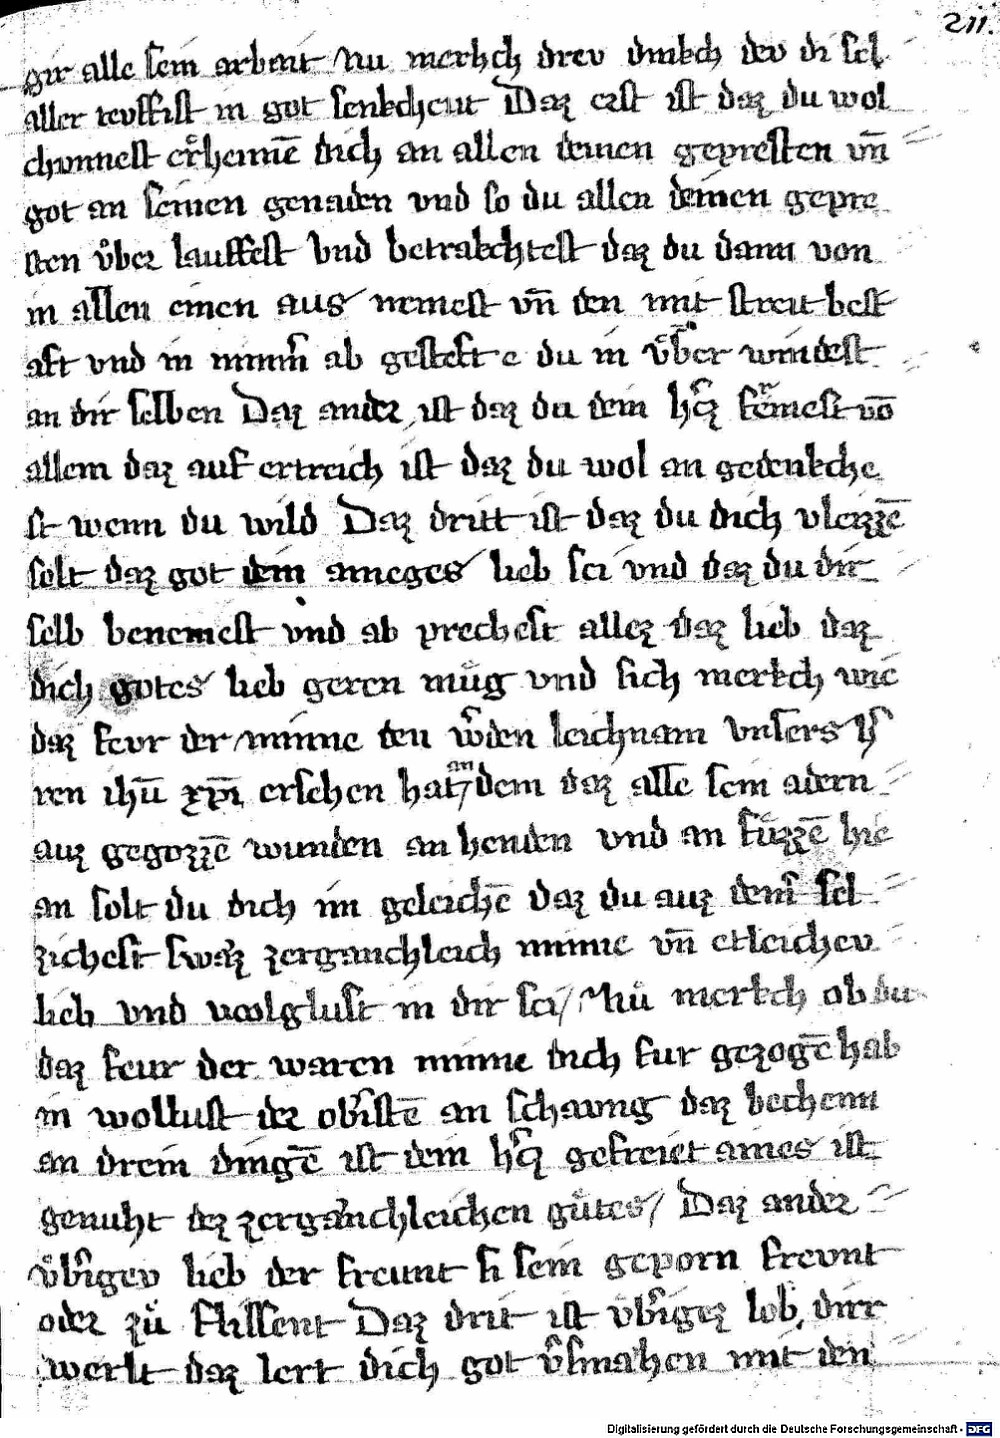 211.
gir alle sein arbeit Nu merkch drev dinkch dev di sel
aller tevffist in got senkchent Daz erst ist daz du wol
chvnnest erchenne̅ dich an allen deinen gepresten vn̅
got an seinen genaden vnd so du allen deinen gepre
sten v̊ber lauffest vnd betrakchtest daz du dann von
in allen einen aus nemest vn̅ den mit streit best
aft vnd in nimm̅ ab gestest e du in v̊ber windest
an dir selben Daz ander ist daz du dein h̾cz
allem daz auf ertreich ist daz du wol an gedenkche
st wenn du wild Daz dritt ist daz du dich vleizze̅
solt daz got dein ainiges lieb sei vnd daz du dir
selb benemest vnd ab prechest allez daz lieb daz
dich gotes lieb geren mu̍g vnd sich merkch wie
daz feur der minne den leichnam vnsers h̾
ren ihu̅ xpi̅ ersehen hat an dem daz alle sein adern
auz gegozze̅ wunden an henden vnd an fu̍zze̅ hie
an solt du dich im geleiche̅ daz du auz
zichest swaz zerganchleich minne vn̅ etleichev
lieb vnd wolglust in dir sei / Nu̍ merkch ob du
daz feur der waren minne dich fur gezoge̅ hab
in wollust der ob̾iste̅ an schavng daz bechenn
an drein dinge̅ ist dein h̾cz gefreiet aines ist
genuht der zerganchleichen gu̍tes / Daz ander
v̊b̾igev lieb der freunt si sein geporn frevnt
oder zu̍ flissent Daz drit ist v̊b̾igez lob dirr
werlt daz lert dich got v̾smahen mit den
Digitalisierung gefördert durch die Deutsche Forschungsgemeinschaft - DFG